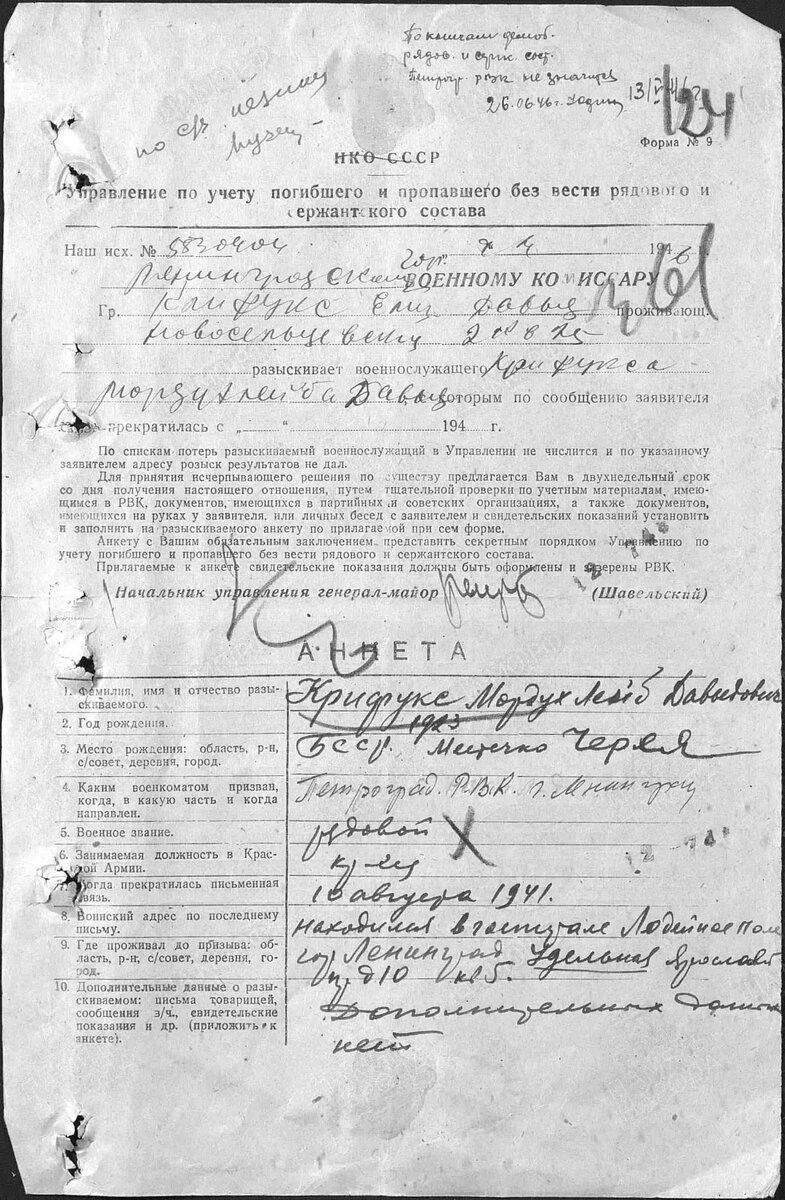 По книгам демоб.
рядов. и серж. сост.
Петрогр. РВК не значится
26.06.46 г.
13/
124
по
Форма № 9
НКО СССР
Управление по учету погибшего и пропавшего без вести рядового и
сержантского состава
Наш исх. № 5830404 194 6 г.
Ленинградскому гор. ВОЕННОМУ КОМИССАРУ
Гр. Крифукс Елиз Давыд проживающ.
разыскивает военнослужащего Крифукса
Мордухлейба Давыд которым по сообщению заявителя
связь прекратилась с „ “ 194 г.
По спискам потерь разыскиваемый военнослужащий в Управлении не числится и по указанному
заявителем адресу розыск результатов не дал.
Для принятия исчерпывающего решения по существу предлагается Вам в двухнедельный срок
со дня получения настоящего отношения, путем тщательной проверки по учетным материалам, имею-
щимся в РВК, документов, имеющихся в партийных и советских организациях, а также документов,
имеющихся на руках у заявителя, или личных бесед с заявителем и свидетельских показаний установить
и заполнить на разыскиваемого анкету по прилагаемой при сем форме.
Анкету с Вашим обязательным заключением представить секретным порядком Управлению по
учету погибшего и пропавшего без вести рядового и сержантского состава.
Прилагаемые к анкете свидетельские показания должны быть оформлены и заверены РВК.
Начальник управления генерал-майор (Шавельский)
АНКЕТА
1. Фамилия, имя и отчество разы-
скиваемого.
Крифукс Мордух Лейб Давыдович
2. Год рождения.
1923
3. Место рождения: область, р-н,
с/совет, деревня, город.
БССР. Местечко Черея
4. Каким военкоматом призван,
когда, в какую часть и когда
направлен.
Петроград. Р.В.К. г.
5. Военное звание.
рядовой
6. Занимаемая должность в Крас-
ной Армии.
кр-ец
7. Когда прекратилась письменная
связь.
10 августа 1941.
8. Воинский адрес по последнему
письму.
находился в госпитале Лодейное поле
9. Где проживал до призыва: об-
ласть, р-н, с/совет, деревня, го-
род.
гор Ленинград Удельная Ярослав
д 10 кв 5.
10. Дополнительные данные о ра-
зыскиваемом: письма товарищей,
сообщения з/ч., свидетельские
показания и др. (приложить к
анкете).
Дополнительных данных
нет